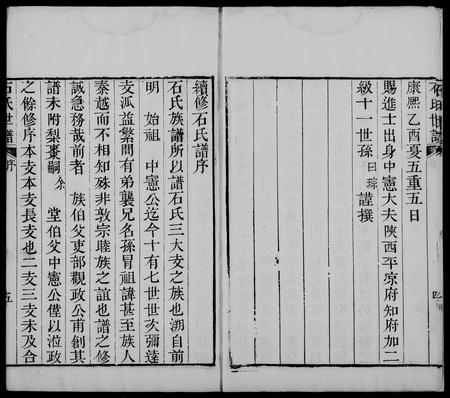 石氏世譜
四
康熙乙酉夏五重五日
賜進士出身中憲大夫陝西平凉府知府加二
級十一世孫曰琮謹撰
續修石氏譜序
石氏族譜所以譜石氏三大支之族也溯自前
明始祖中憲公迄今十有七世世次彌遠
支派益繁間有弟襲兄名孫冒祖諱甚至族人
秦越而不相知殊非敦宗睦族之誼也譜之修
誠急務哉前者族伯父吏部觀政公甫創其
譜未附棃棗嗣余堂伯父中憲公僅以涖政
之餘修序本支本支長支也二支三支未及合
石氏世譜
序
五